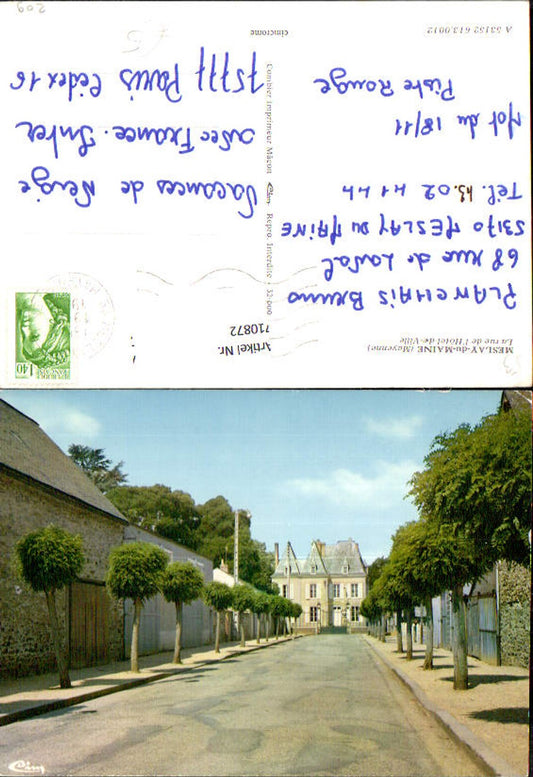 MESLAY-du-MAINE (Mayenne)
La rue de l'Hôtel-de-Ville
PLANCHAIS Bruno
68 rue de Laval
53170 MESLAY DU MAINE
Tél. 43.02 41 44
Mot du 18/11
Piste Rouge
A 53152 613.0012
Combier Imprimeur Mâcon
Repro. Interdite - 32-000
cimcrome
Artikel Nr.
710872
1,40
REPUBLIQUE
FRANÇAISE
Vacances de Neige
avec France-Inter
75777 Paris Cedex 16
209
Cim